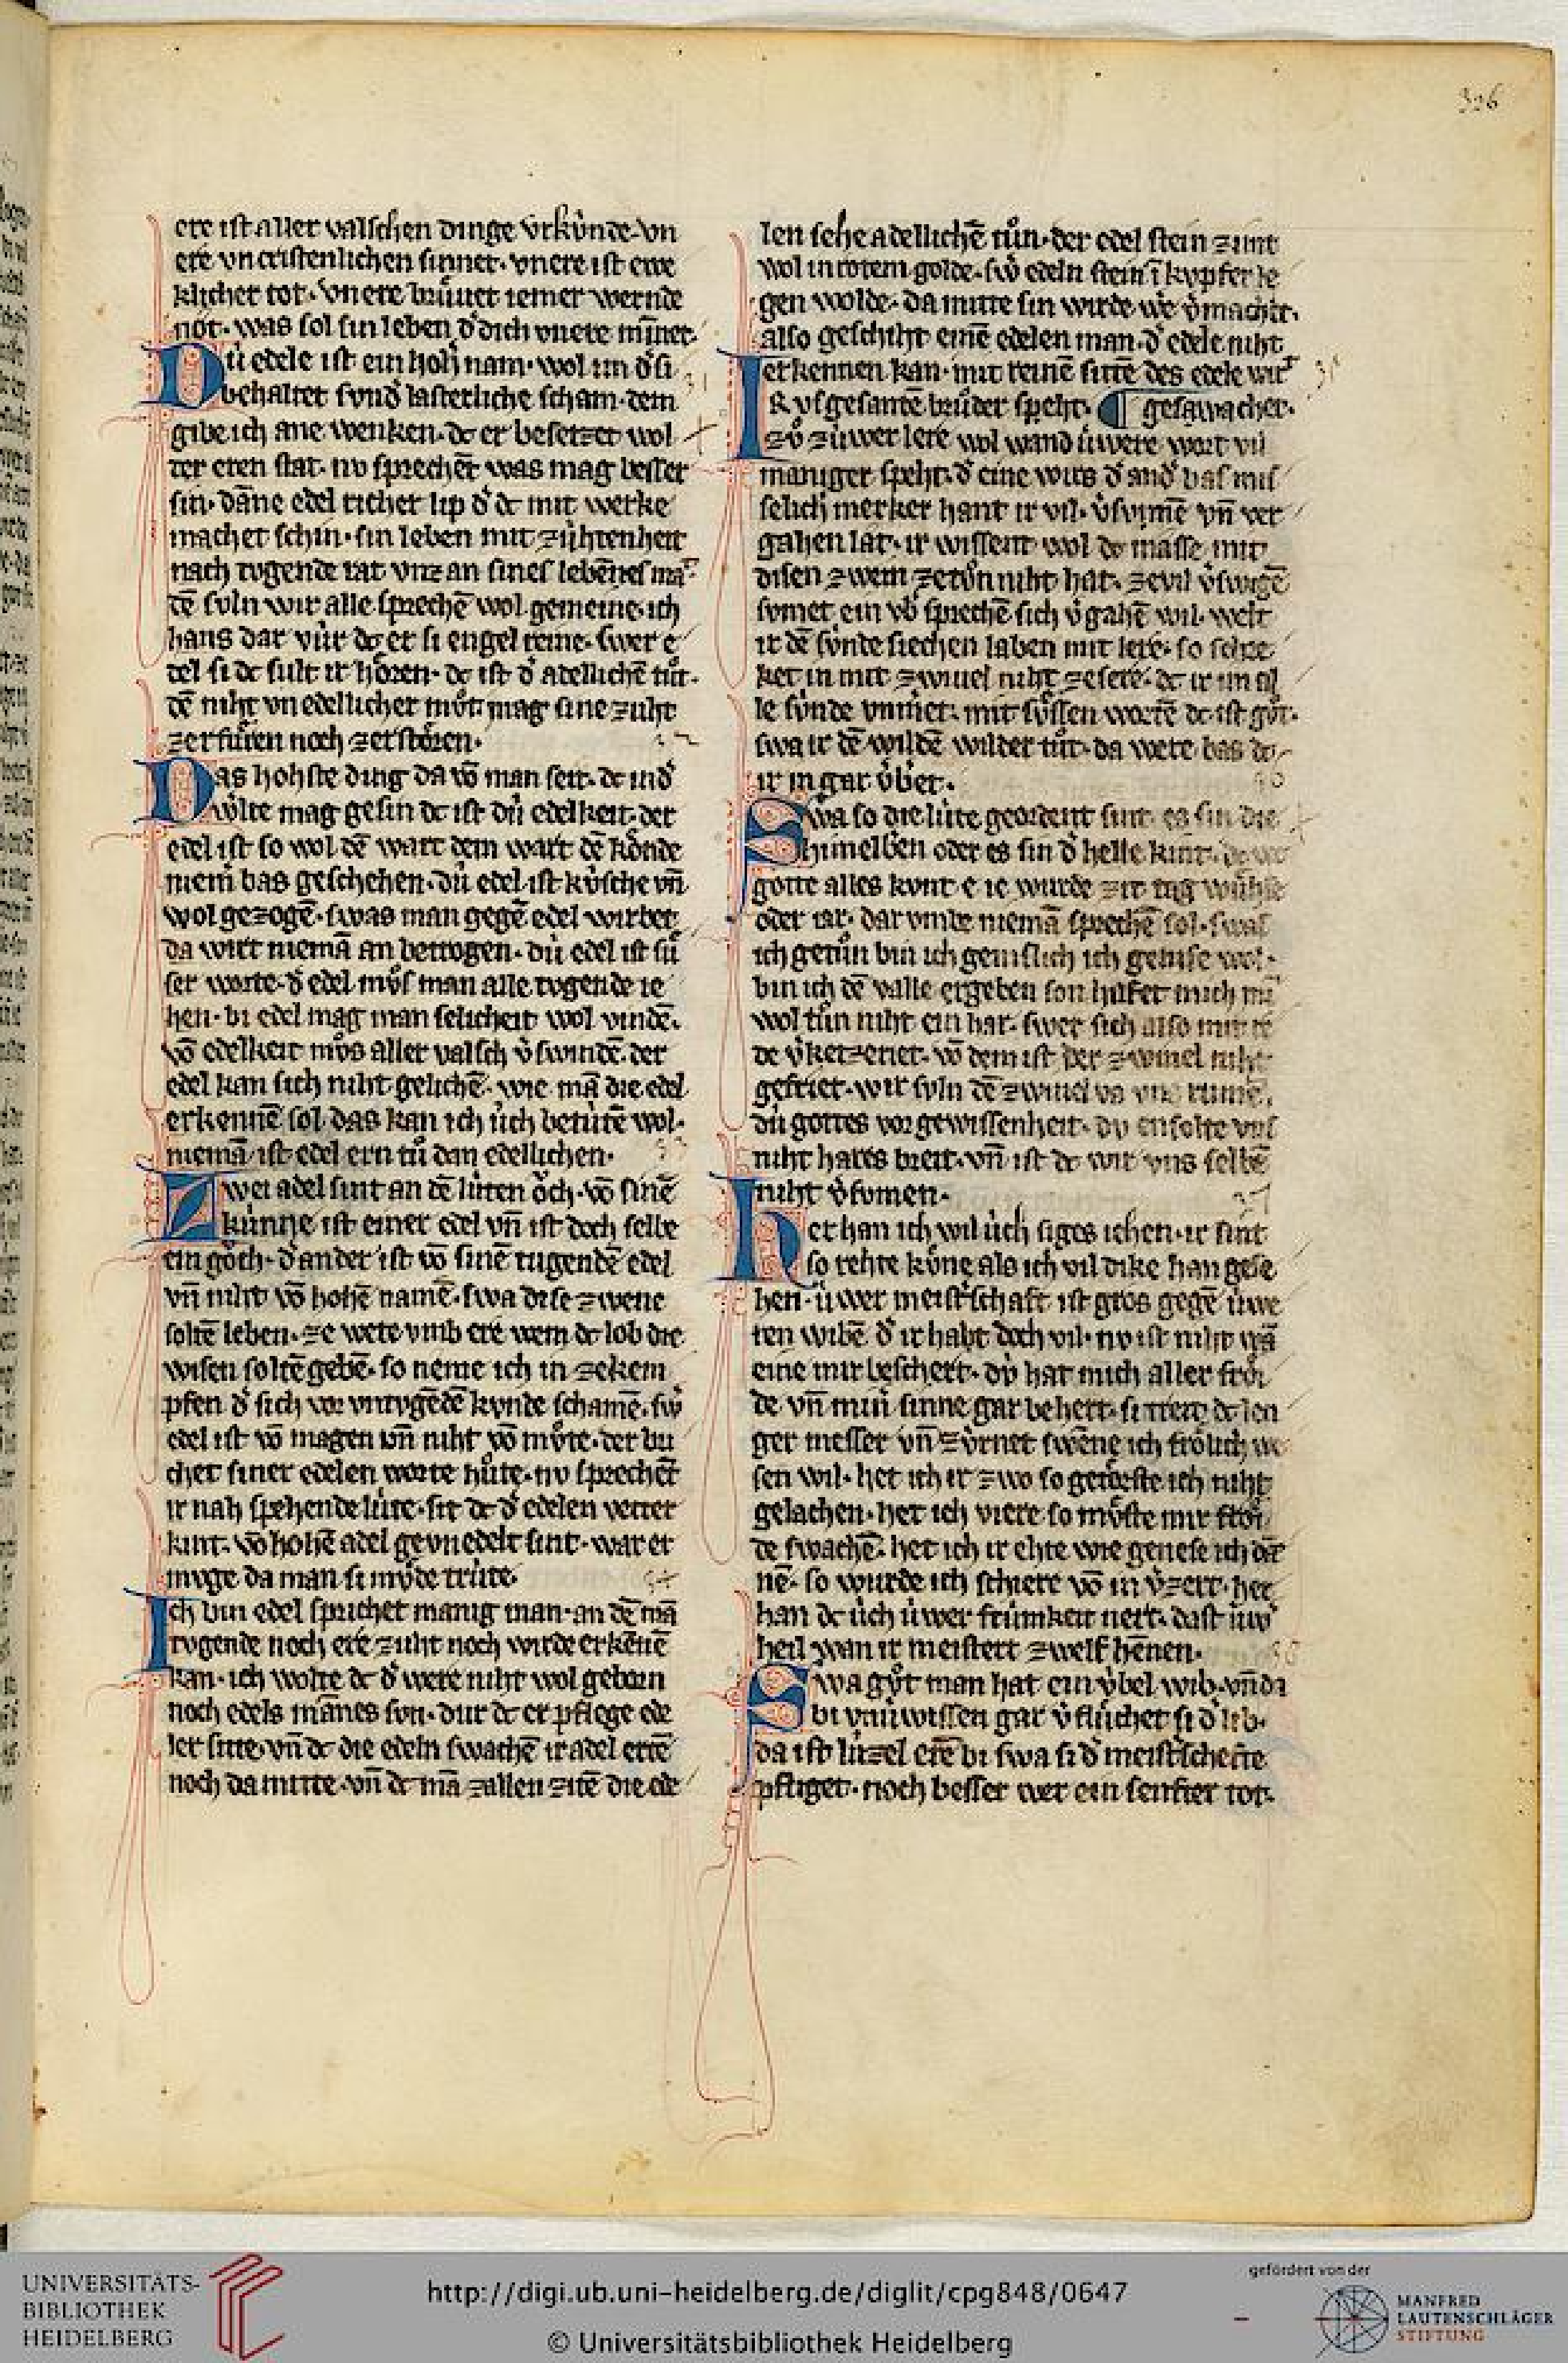 326
ere ist aller valschen dinge vrkúnde· vn
ere vncristenlichen sinnet· vnere ist ewe
klicher tot· vnere brúwet iemer wernde
not· was sol sin leben d̾ dich vnere minnet·
Dú edele ist ein hoh nam· wol im d̾ si
behaltet svnd̾ lasterliche scham· dem
gibe ich ane wenken· dc er besetzet wol
der eren stat· nv sprechēt was mag besser
sin· dāne edel richer lip d̾ dc mit werke
machet schin· sin leben mit zúhtenheit
nach tvgende rat vnz an sines lebēnes
dē svln wir alle sprechē wol gemeine· ich
hans dar vúr dc er si engel reine· swer e
del si dc sult ir hôren· dc ist d̾ adellichē tůt·
dē niht vnedellicher můt mag sine zuht
zerfůren noch zerstôren·
Das hohste ding da vō man seit· dc ind̾
wlte mag gesin dc ist dú edelkeit· der
edel ist so wol dē wart dem wart dē kônde
niem̄ bas geschehen· dú edel ist kúsche vn̄
wol gezogē· swas man gegē edel wirbet
da wirt niemā an betrogen· dú edel ist sů
ser worte· d̾ edel můs man alle tvgende ie
hen· bi edel mag man selicheit wol vindē·
vō edelkeit můs aller valsch v̾swindē· der
edel kan sich niht gelichē· wie mā die edel
erkennē sol· das kan ich úch betútē wol·
niemā ist edel ern tů dan edellichen·
Zwei adel sint an dē lúten ôch· vō sinē
kúnne ist einer edel vn̄ ist doch selbe
ein gôch· d̾ ander ist vō sinē tugendē edel
vn̄ niht vō hohē namē· swa dise zwene
soltē leben· ze wete vmb ere wem dc lob die
wisen soltē gebē· so neme ich in zekem
pfen d̾ sich vor vntvgēdē kvnde schamē· sw̾
edel ist vō magen vn̄ niht vō můte· der bu
chet siner edelen worte hůte· nv sprechēt
ir nah spehende lúte· sit dc d̾ edelen vetter
kint· vō hohē adel gevnedelt sint· war er
mvge da man si můde trúte·
Ich bin edel sprichet manig man· an dē mā
tvgende noch ere zuht noch wirde erkēnē
kan· ich wolte dc d̾ were niht wol geborn
noch edels mānes svn· dur dc er pflege ede
ler sitte· vn̄ dc die edeln swachē ir adel ertē
noch da mitte· vn̄ dc mā zallen zitē die ede
len sehe adellichē tůn· der edel stein zimt
wol in rotem golde· sw̾ edeln stein ī kvpfer le
gen wolde· da mitte sin wirde we v̾machet·
also geschiht einē edelen man· d̾ edele niht
erkennen kan· mit reinē sittē des edele wirt
geswachet·
Ir vsgesantē brůder speht·
zů zúwer lere wol wand úwere wort vil
maniger speht· d̾ eine wirs d̾ and̾ bas mis
selich merker hant ir vil· v̾svmē vn̄ ver
gahen lat· ir wissent wol dc masse mit
disen zwein zetůn niht hat· zevil v̾swigē
svmet ein vb̾ sprechē sich v̾gahē wil· welt
ir dē súnde siechen laben mit lere· so schre
ket in mit zwiuel niht zesere· dc ir im al
le súnde vnmet· mit sůssen wortē dc ist gůt·
swa ir dē wildē wilder tůt· da were bas dc
ir in gar v̾ber·
Swa so die lúte geordent sint· es sin die
himelben oder es sin d̾ helle kint· dc wc
gotte alles kvnt e ie wurde zit tag wúhse
oder iar· dar vmbe niemā sprechē sol· swas
ich getůn bin ich genislich ich genise wol·
bin ich dē valle ergeben son hilfet mich mī
wol tůn niht ein har· swer sich also mit re
de v̾ketzeriet· vō dem ist der zwiuel niht
gefriet· wir svln dē zwiuel vs vns rumē·
dú gottes vorgewissenheit· dv ensolte vns
niht hares breit· vn̄ ist dc wir vns selbē
niht v̾svmen·
Her han ich wil úch siges iehen· ir sint
so rehte kůne als ich vil dike han gese
hen· úwer meist̾schaft ist gros gegē úwe
ren wibē d̾ ir habt doch vil· nv ist niht wā
eine mir beschert· dú hat mich aller frôi
de vn̄ min̄ sinne gar behert· si treit dc len
ger messer vn̄ zúrnet swēne ich frôlich we
sen wil· het ich ir zwo so getôrste ich niht
gelachen· het ich viere so můste mir frôi
de swachē· het ich ir ehte wie genese ich dā
nē· so wurde ich schiere vō in v̾zert· her
han dc úch úwer frúmkeit nert· dast úw̾
heil wan ir meistert zwelf hēnen·
Swa gůt man hat ein v́bel wib· vn̄ da
bi vnúwissen gar v̾flůchet si d̾ lib·
da ist lúzel ere bi swa si d̾ meist̾schefte
pfliget· noch besser wer ein senfter tot·
UNIVERSITÄTS-
BIBLIOTHEK
HEIDELBERG
http://digi.ub.uni-heidelberg.de/diglit/cpg848/0647
© Universitätsbibliothek Heidelberg
gefördert von der
MANFRED
LAUTENSCHLÄGER
STIFTUNG